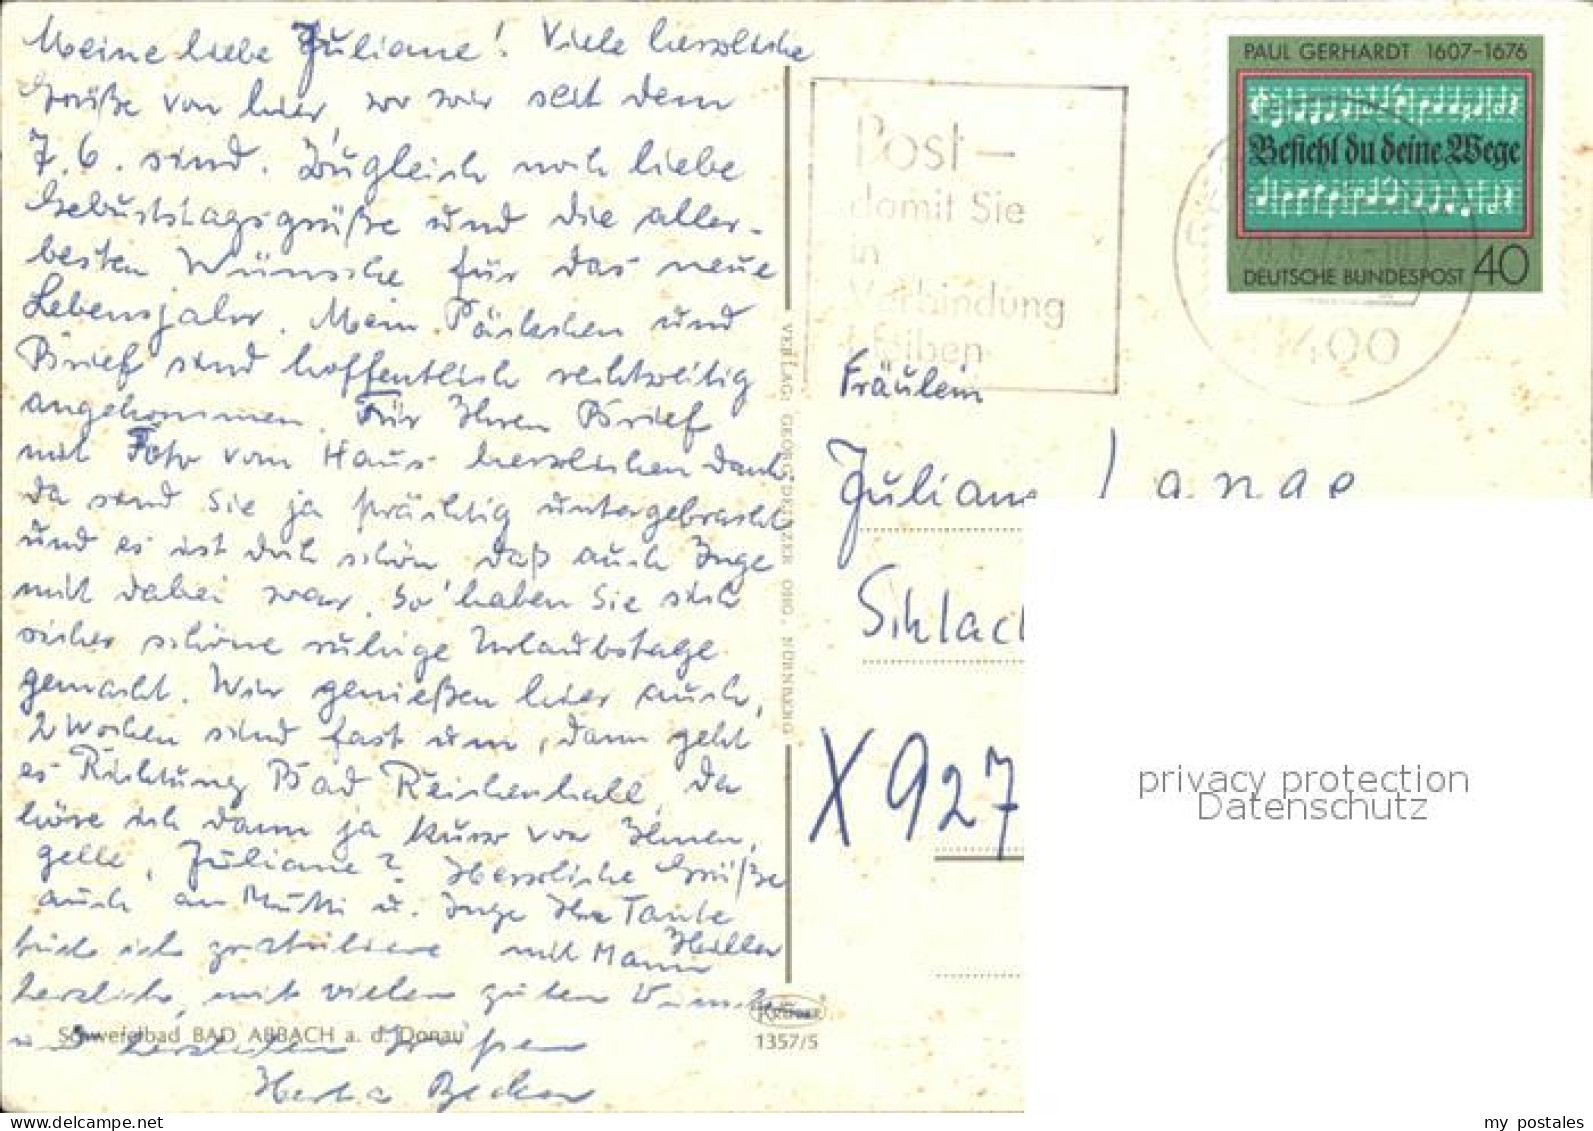 Meine liebe Juliane! Viele herzliche
Grüße von hier, wo wir seit dem
7.6. sind. Zugleich noch liebe
Geburtstagsgrüße und die aller-
besten Wünsche für das neue
Lebensjahr. Mein Päckchen und
Brief sind hoffentlich rechtzeitig
angekommen. Für Ihren Brief
mit Foto vom Haus herzlichen Dank
da sind Sie ja prächtig untergebracht
und es ist doch schön daß auch Inge
mit dabei war. So haben Sie sich
sicher schöne ruhige Urlaubstage
gemacht. Wir genießen hier auch,
2 Wochen sind fast um, dann geht
es Richtung Bad Reichenhall, da
höre ich dann ja kurz von Ihnen,
gelle, Juliane? Herzliche Grüße
auch an Mutti u. Inge Ihre Tante
mit Mann
Auch ich gratuliere
herzlich, mit vielen guten Wünschen
und herzlichen Grüßen
Schwefelbad BAD ABBACH a. d. Donau
VERLAG: GEORG DETZER OHG, NÜRNBERG
1357/5
PAUL GERHARDT 1607-1676
Befiehl du deine Wege
DEUTSCHE BUNDESPOST 40
Post-
damit Sie
in
Verbindung
bleiben
400
Fräulein
Juliane Lange
Schlach
X 927
privacy protection
Datenschutz
my postales